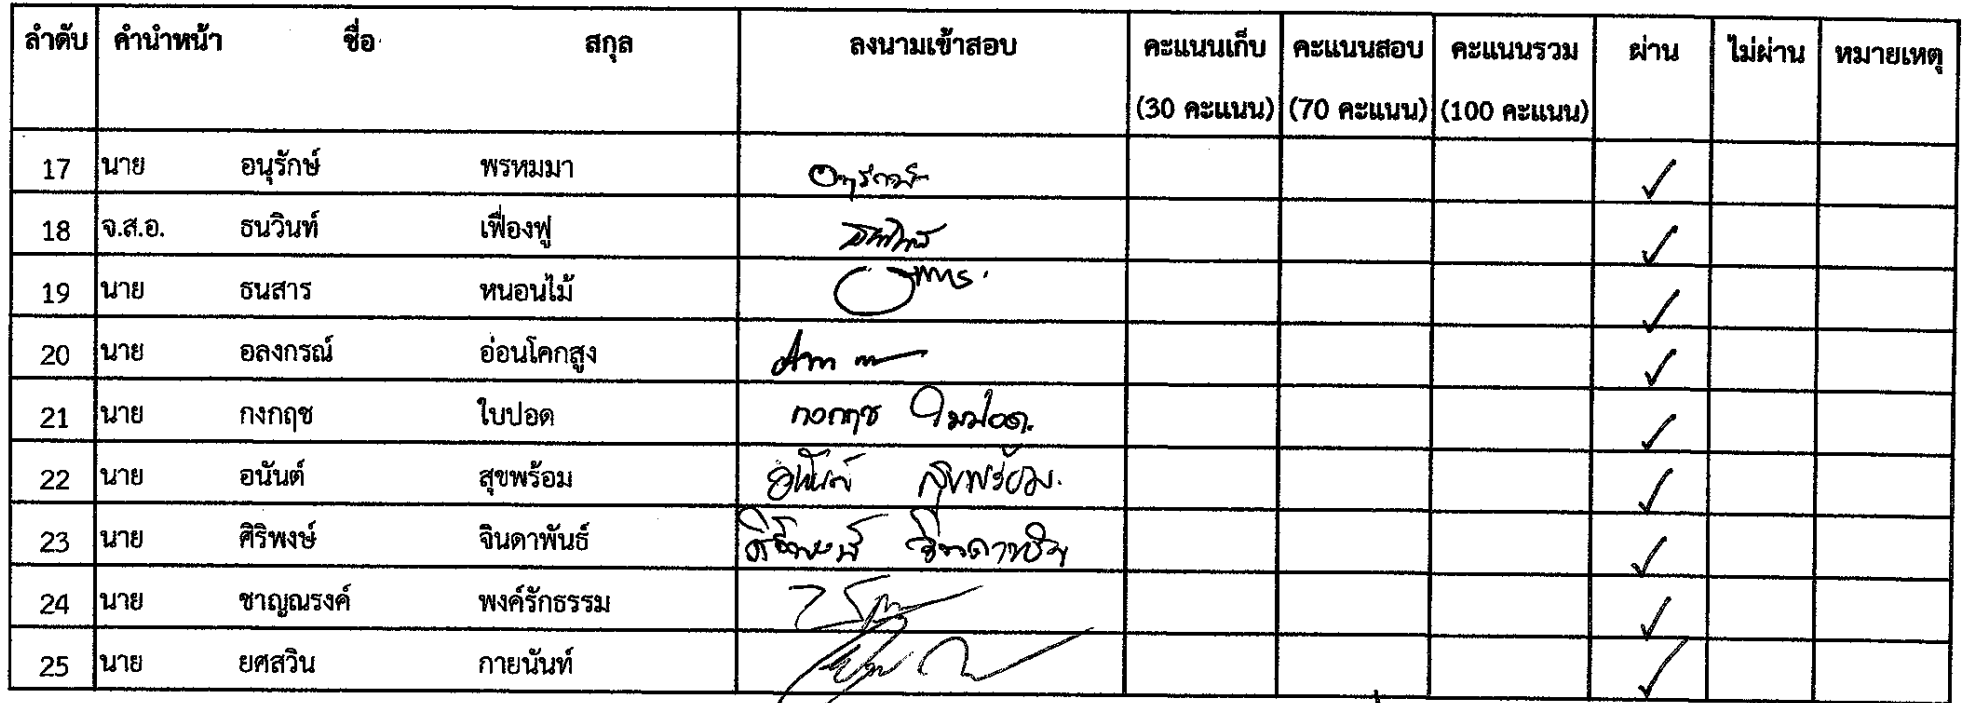 ลำดับ คำนำหน้า ชื่อ สกุล ลงนามเข้าสอบ คะแนนเก็บ คะแนนสอบ คะแนนรวม ผ่าน ไม่ผ่าน หมายเหตุ
(30 คะแนน) (70 คะแนน) (100 คะแนน)
17 นาย อนุรักษ์ พรหมมา อนุรักษ์ ✓
18 จ.ส.อ. ธนวินท์ เฟื่องฟู ✓
19 นาย ธนสาร หนอนไม้ ✓
20 นาย อลงกรณ์ อ่อนโคกสูง ✓
21 นาย กงกฤช ใบปอด กงกฤช ใบปอด ✓
22 นาย อนันต์ สุขพร้อม อนันต์ สุขพร้อม ✓
23 นาย ศิริพงษ์ จินดาพันธ์ ศิริพงษ์ จินดาพันธ์ ✓
24 นาย ชาญณรงค์ พงค์รักธรรม ✓
25 นาย ยศสวิน กายนันท์ ✓